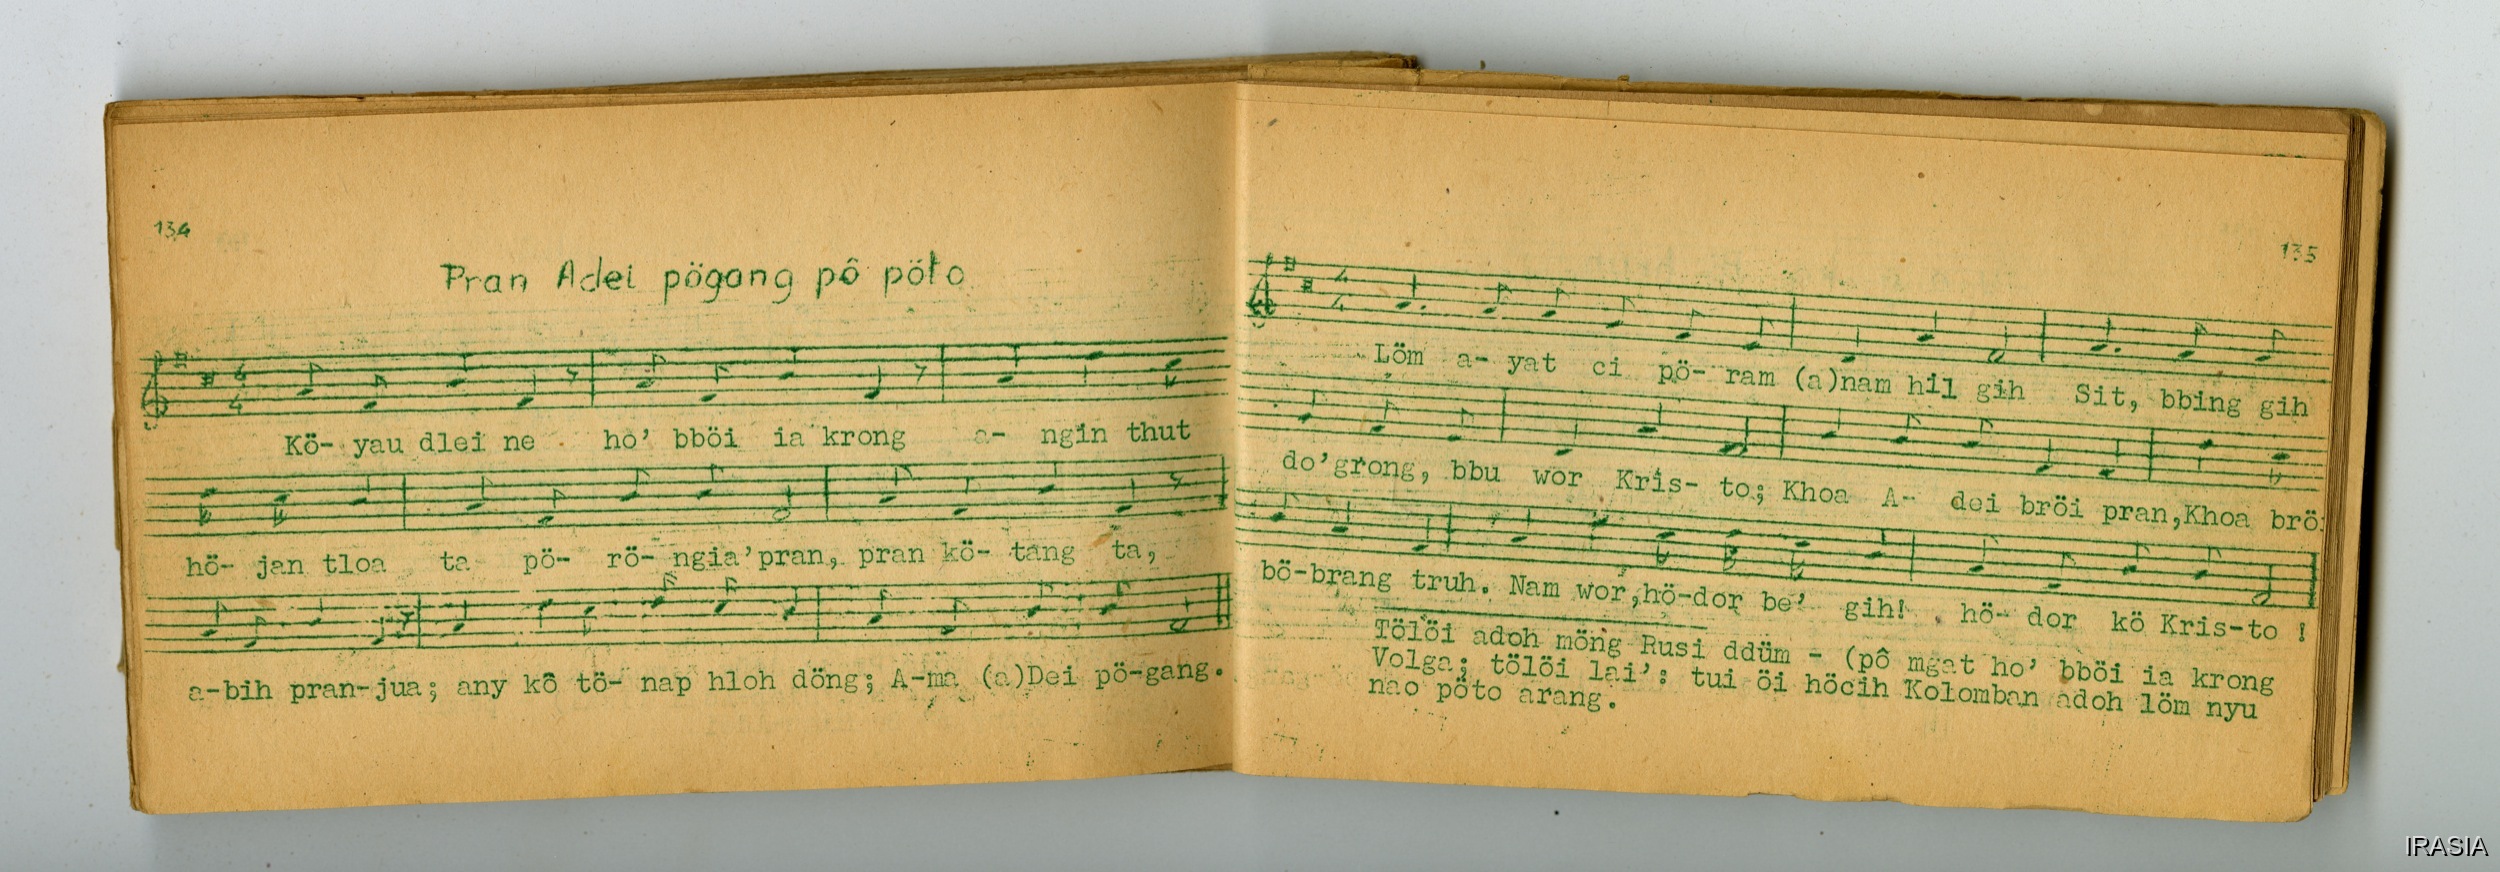 134
Pran Adei pögang pô pöto
Kö- yau dlei ne ho' bböi ia krong a- ngin thut
hö- jan tloa ta pö- rö- ngia'pran, pran kö- tang ta,
a-bih pran-jua; any kô tö- nap hloh döng; A-ma (a)Dei pö-gang.
135
4
4
Löm a- yat ci pö- ram (a)nam hil gih Sit, bbing gih
do'grong, bbu wor Kris- to; Khoa A- dei bröi pran,Khoa bröi
bö-brang truh. Nam wor,hö-dor be' gih! hö- dor kö Kris-to !
Tölöi adoh möng Rusi ddüm - (pô mgat ho' bböi ia krong
Volga; tölöi lai': tui öi höcih Kolomban adoh löm nyu
nao pöto arang.
IRASIA